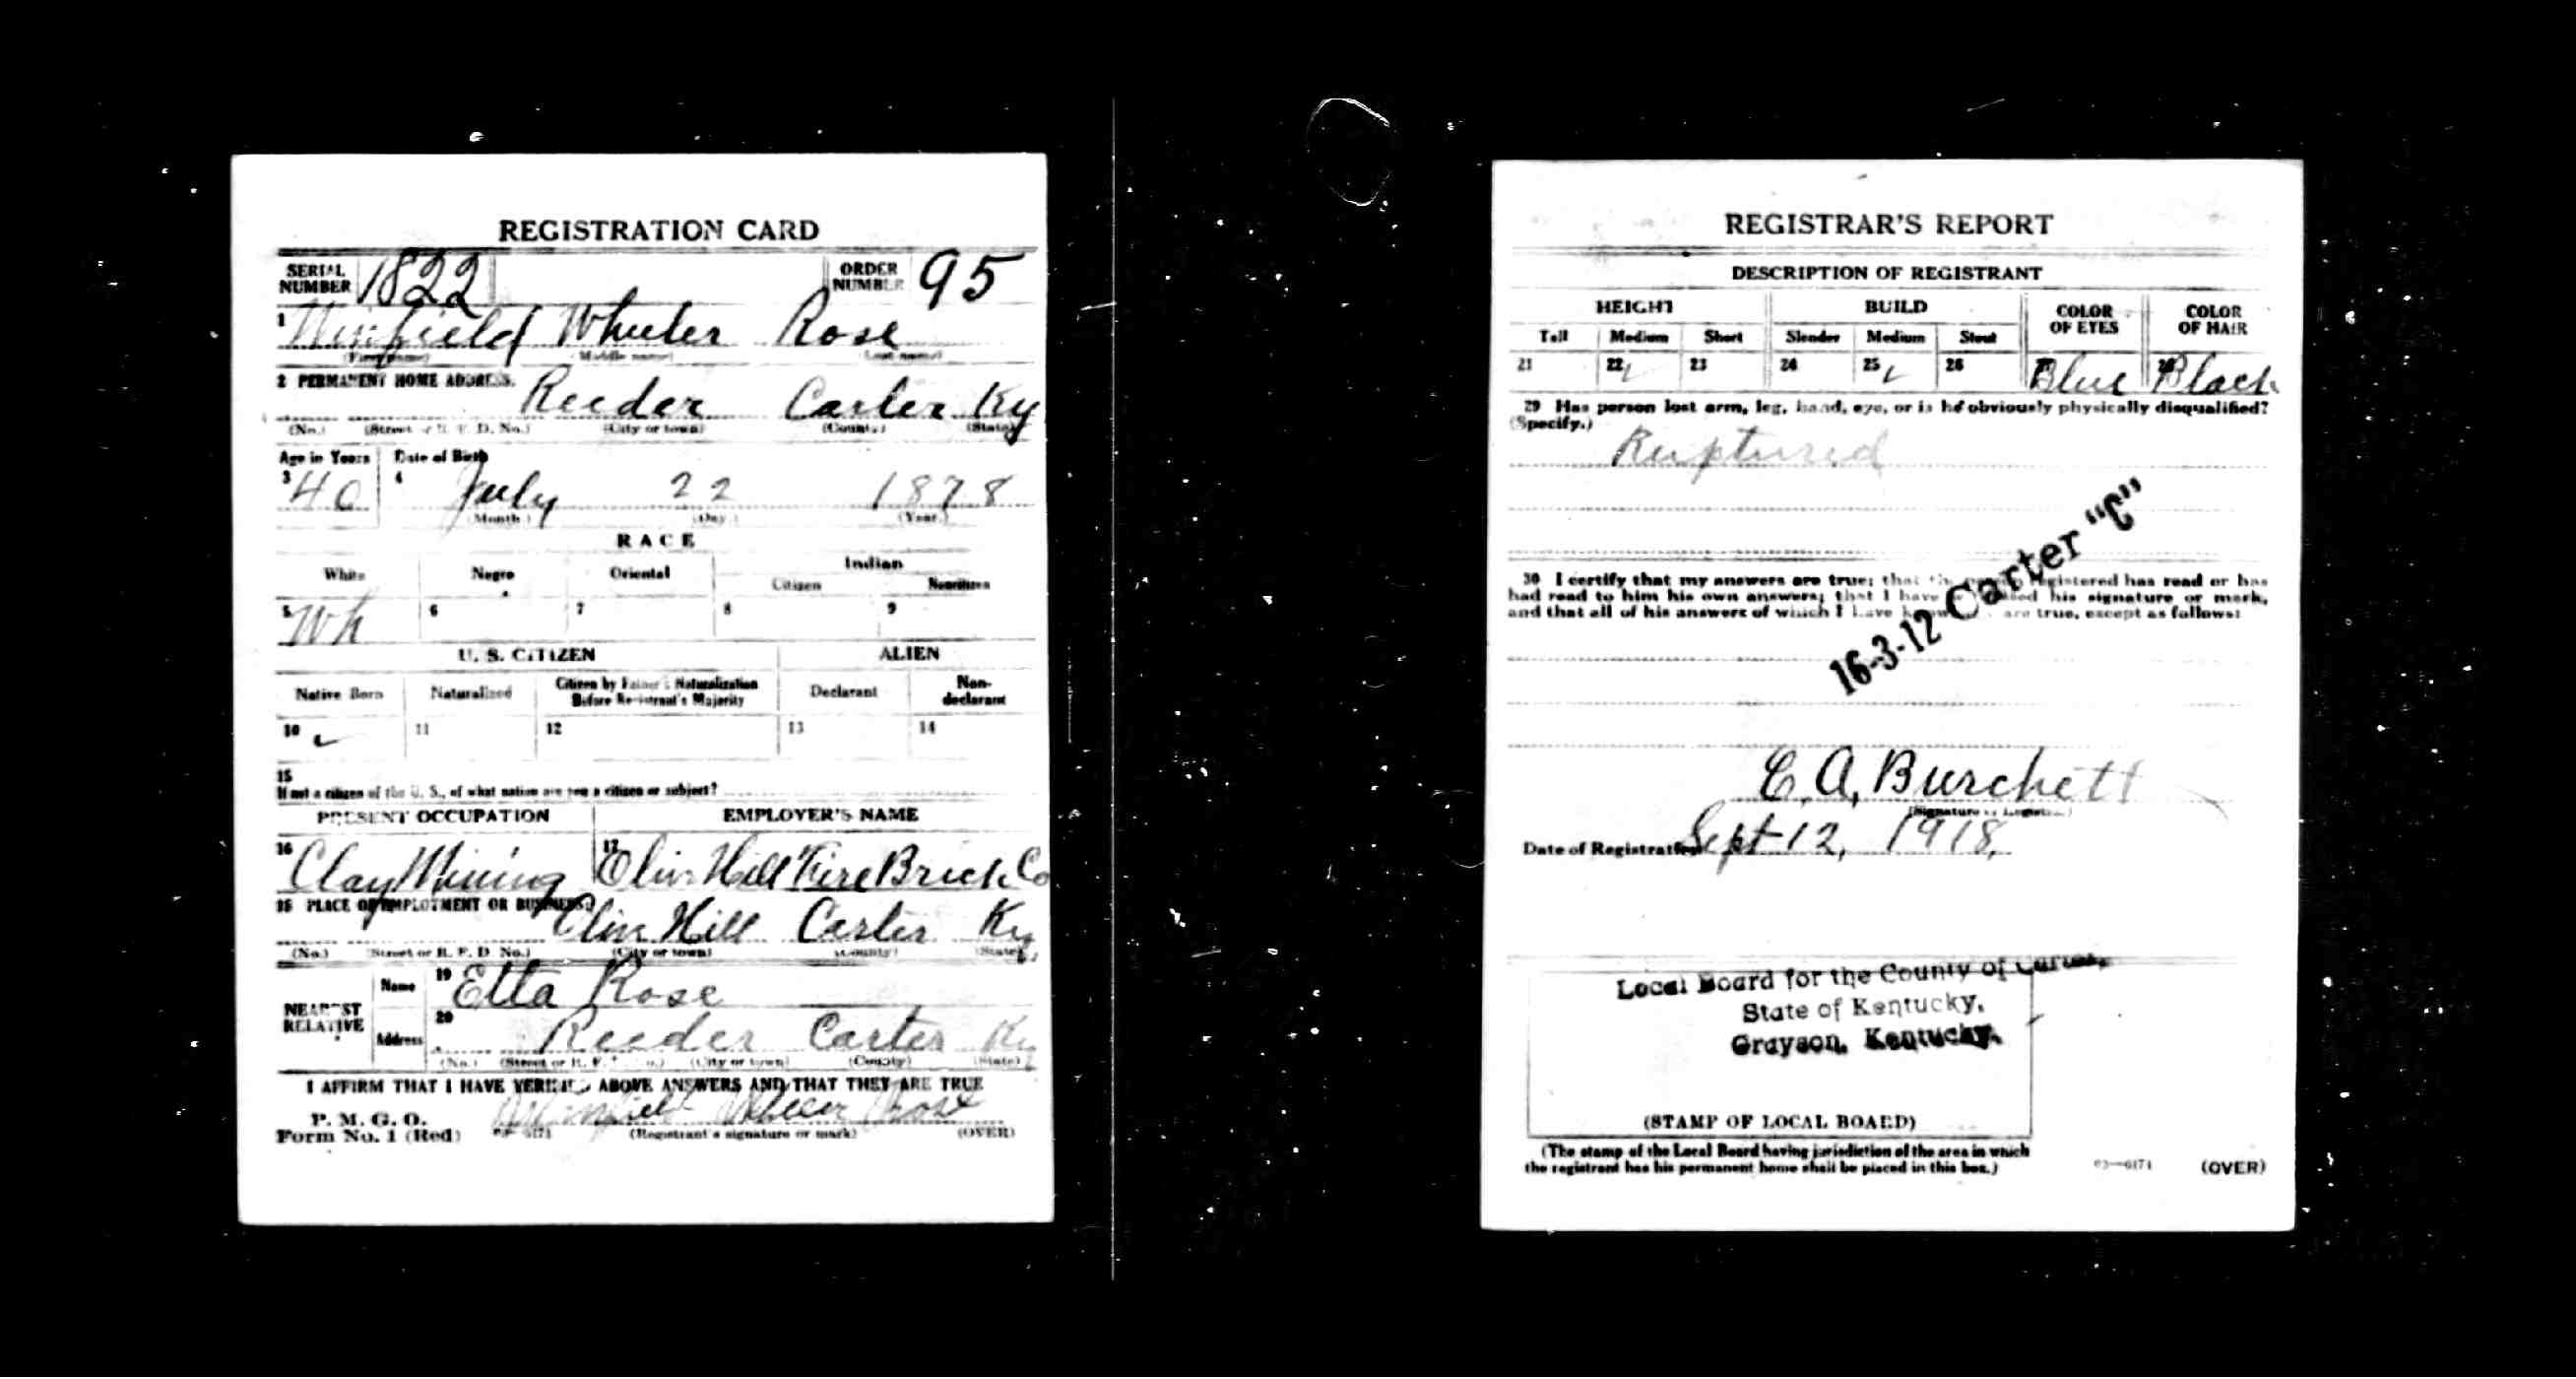 REGISTRATION CARD
SERIAL NUMBER 1822 ORDER NUMBER 95
1 Winfield Wheeler Rose
(First name) (Middle name) (Last name)
2 PERMANENT HOME ADDRESS.
Reeder Carter Ky
(No.) (Street or R. F. D. No.) (City or town) (County) (State)
Age in Years Date of Birth
3 40 4 July 22 1878
(Month) (Day) (Year)
RACE
White Negro Oriental Indian
Citizen Noncitizen
5 Wh 6 7 8 9
U. S. CITIZEN ALIEN
Native Born Naturalized Citizen by Father's Naturalization Before Registrant's Majority Declarant Non-declarant
10 ✓ 11 12 13 14
15
If not a citizen of the U. S., of what nation are you a citizen or subject?
PRESENT OCCUPATION EMPLOYER'S NAME
16 Clay Mining 17 Olive Hill Fire Brick Co
18 PLACE OF EMPLOYMENT OR BUSINESS
Olive Hill Carter Ky,
(No.) (Street or R. F. D. No.) (City or town) (County) (State)
NEAREST RELATIVE
Name 19 Etta Rose
Address 20 Reeder Carter Ky
(No.) (Street or R. F. D. No.) (City or town) (County) (State)
I AFFIRM THAT I HAVE VERIFIED ABOVE ANSWERS AND THAT THEY ARE TRUE
P. M. G. O.
Form No. 1 (Red)
Winfield Wheeler Rose
(Registrant's signature or mark) (OVER)
REGISTRAR'S REPORT
DESCRIPTION OF REGISTRANT
HEIGHT BUILD COLOR OF EYES COLOR OF HAIR
Tall Medium Short Slender Medium Stout
21 22 ✓ 23 24 25 ✓ 26 Blue Black
29 Has person lost arm, leg, hand, eye, or is he obviously physically disqualified?
(Specify.)
Ruptured
30 I certify that my answers are true; that the person registered has read or has
had read to him his own answers; that I have witnessed his signature or mark,
and that all of his answers of which I have knowledge are true, except as follows:
16-3-12 Carter "C"
E. A. Burchett
(Signature of Registrar)
Date of Registration Sept 12, 1918,
Local Board for the County of Carter,
State of Kentucky,
Grayson, Kentucky.
(STAMP OF LOCAL BOARD)
(The stamp of the Local Board having jurisdiction of the area in which
the registrant has his permanent home shall be placed in this box.)
03—6171 (OVER)